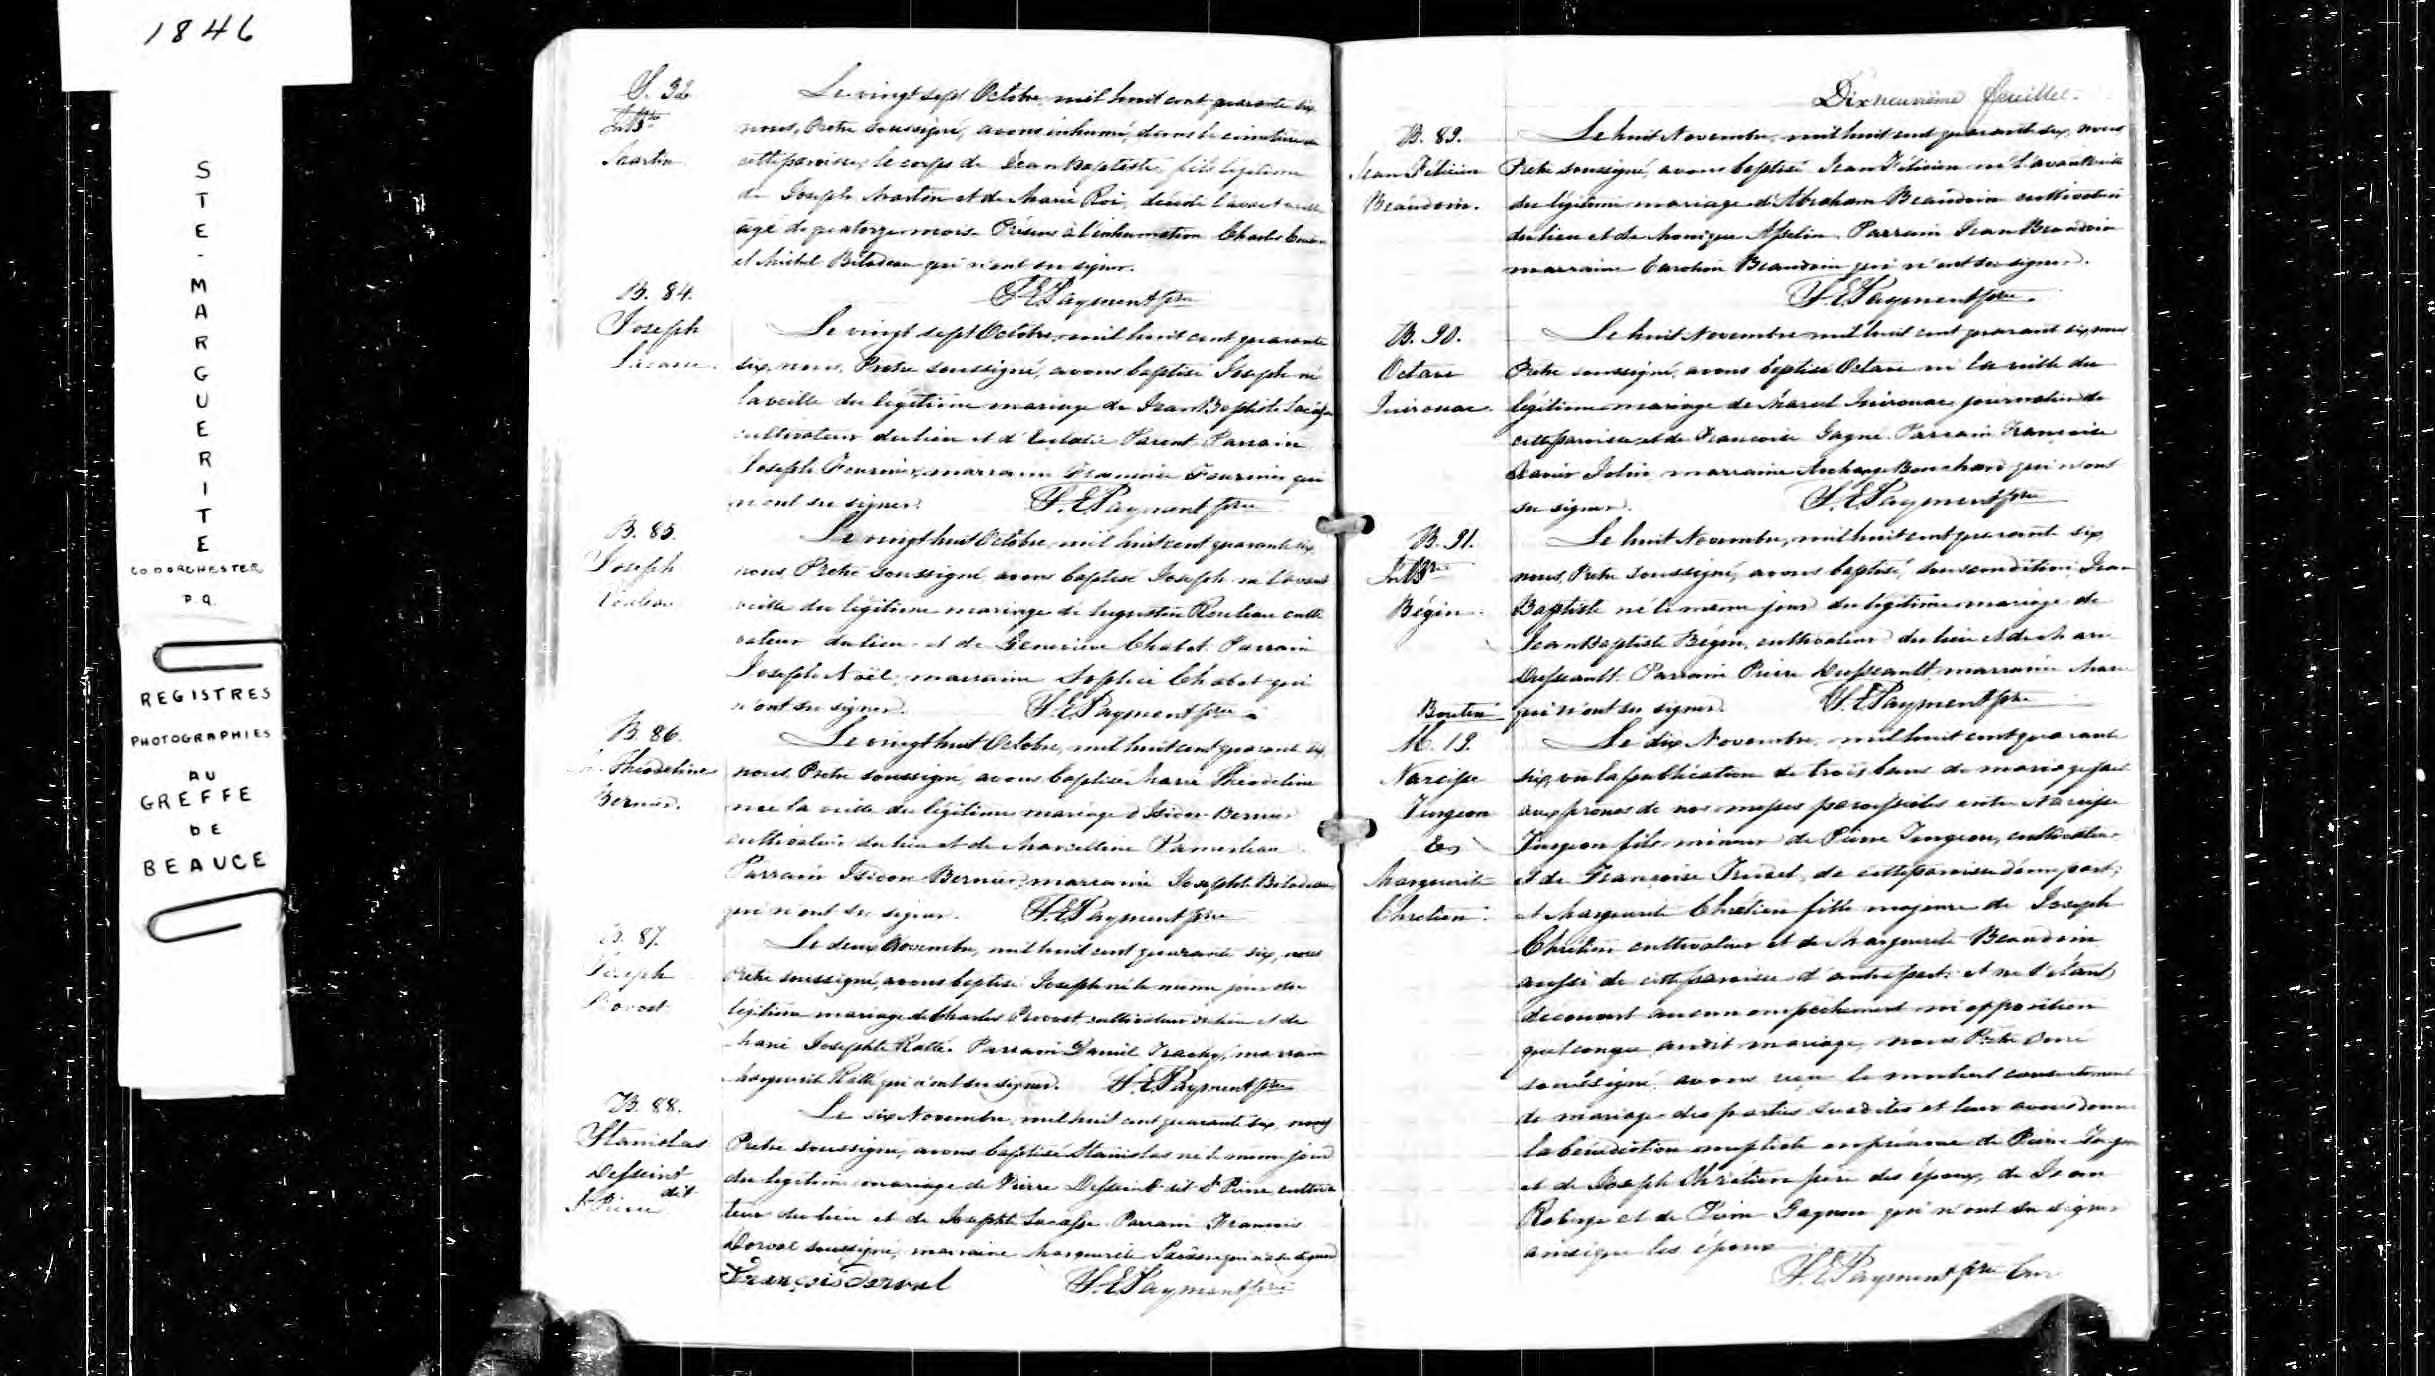 1846
STE-MARGUERITE
CO. DORCHESTER
P.Q.
REGISTRES
PHOTOGRAPHIES
AU
GREFFE
DE
BEAUCE
S. 32
Jn Bte
Martin
Le vingt sept Octobre, mil huit cent quarante six
nous, Prêtre soussigné, avons inhumé, dans le cimetière de
cette paroisse, le corps de Jean Baptiste, fils légitime
de Joseph Martin et de Marie Roi, décédé l'avant veille
agé de quatorze mois. Présens à l'inhumation Charles
et Michel Bilodeau qui n'ont su signer.
F. E. Payment ptre
B. 84.
Joseph
Lacasse.
Le vingt sept Octobre, mil huit cent quarante
six, nous, Prêtre soussigné, avons baptisé Joseph né
la veille du légitime mariage de Jean Baptiste Lacasse
cultivateur du lieu et d'Eulalie Parent. Parrain
Joseph Fournier, marraine Françoise Fournier qui
n'ont su signer. F. E. Payment ptre
B. 85.
Joseph
Rouleau
Le vingt huit Octobre, mil huit cent quarante six,
nous, Prêtre soussigné, avons baptisé Joseph né l'avant
veille du légitime mariage de Augustin Rouleau culti
vateur du lieu et de Geneviève Chabot. Parrain
Joseph Noël, marraine Sophie Chabot qui
n'ont su signer. F. E. Payment ptre
B. 86.
M. Théodeline
Bernier.
Le vingt huit Octobre, mil huit cent quarante six,
nous, Prêtre soussigné, avons baptisé Marie Théodeline
née la veille du légitime mariage d'Isidore Bernier
cultivateur du lieu et de Marcelline
Parrain Isidore Bernier, marraine Josephte Bilodeau
qui n'ont su signer. F. E. Payment ptre
B. 87.
Joseph
Provost
Le deux Novembre, mil huit cent quarante six, nous
Prêtre soussigné, avons baptisé Joseph né le même jour du
légitime mariage de Charles Provost, cultivateur du lieu et de
Marie Josephte Ratté. Parrain Daniel marraine
Marguerite Ratté qui n'ont su signer. F. E. Payment ptre
B. 88.
Stanislas
Desseint
dit
St Pierre
Le six Novembre, mil huit cent quarante six, nous
Prêtre soussigné, avons baptisé Stanislas né le même jour
du légitime mariage de Pierre Desseint dit St Pierre cultiva
teur du lieu et de Josephte Lacasse. Parrain François
Dorval soussigné, marraine Marguerite qui n'a su signer
François Dorval F. E. Payment ptre
Dix neuvième feuillet.
B. 89.
Jean Félicien
Beaudoin.
Le huit Novembre, mil huit cent quarante six, nous
Prêtre soussigné, avons baptisé Jean Félicien né l'avant veille
du légitime mariage d'Abraham Beaudoin cultivateur
du lieu et de Monique Asselin. Parrain Jean Beaudoin
marraine Caroline Beaudoin qui n'ont su signer.
F. E. Payment ptre.
B. 90.
Octave
Quirouac.
Le huit Novembre mil huit cent quarante six, nous
Prêtre soussigné, avons baptisé Octave né la veille du
légitime mariage de Marcel Quirouac journalier de
cette paroisse et de Françoise Gagné. Parrain François
Xavier Jolin marraine Archange Bouchard qui n'ont
su signer. F. E. Payment ptre
B. 91.
Jn Bte
Bégin.
Le huit Novembre, mil huit cent quarante six,
nous, Prêtre soussigné, avons baptisé, sous condition, Jean
Baptiste né le même jour du légitime mariage de
Jean Baptiste Bégin, cultivateur du lieu et de Marie
Dusseault. Parrain Pierre Dusseault marraine Marie
Boutin qui n'ont su signer. F. E. Payment ptre
M. 19.
Narcisse
Turgeon
&
Marguerite
Chretien.
Le dix Novembre, mil huit cent quarante
six, vu la publication de trois bans de mariage faite
aux prônes de nos messes paroissiales entre Narcisse
Turgeon fils mineur de Pierre Turgeon, cultivateur
et de Françoise Trudel, de cette paroisse d'une part;
et Marguerite Chrétien fille majeure de Joseph
Chrétien cultivateur et de Marguerite Beaudoin
aussi de cette paroisse d'autre part; et ne s'étant
découvert aucun empêchement ni opposition
quelconque au dit mariage, nous Prêtre Curé
soussigné, avons reçu le mutuel consentement
de mariage des parties susdites et leur avons donné
la bénédiction nuptiale en présence de Pierre Turgeon
et de Joseph Chrétien père des époux, de Jean
Roberge et de Pierre Gagnon qui n'ont su signer
ainsi que les époux
F. E. Payment ptre Curé